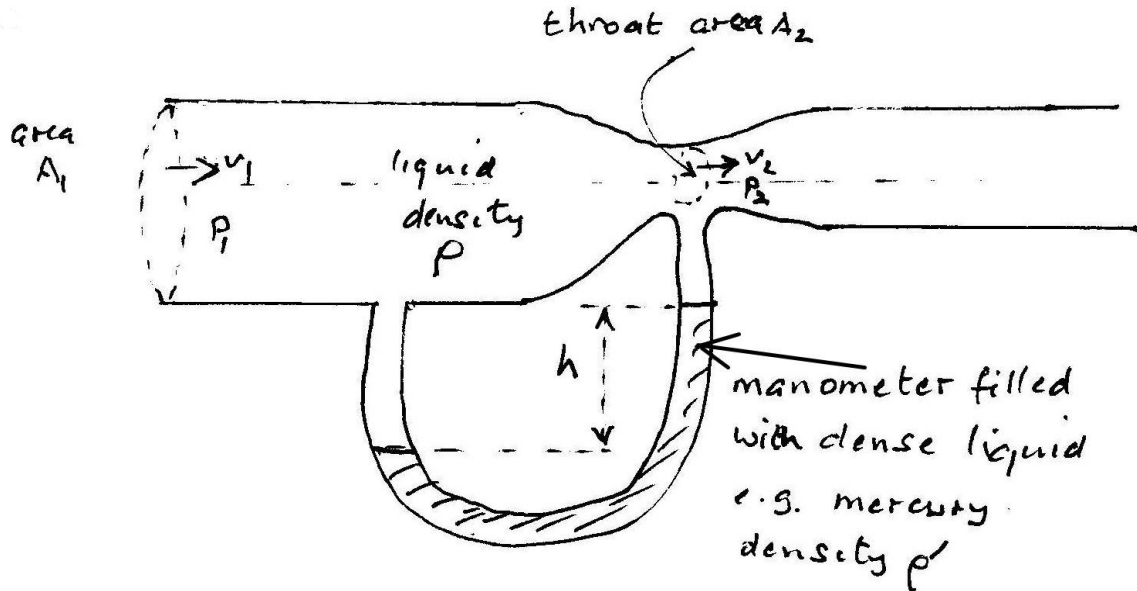 throat area A₂
area
A₁
v₁
P₁
liquid
density
ρ
v₂
P₂
h
manometer filled
with dense liquid
e.g. mercury
density ρ'